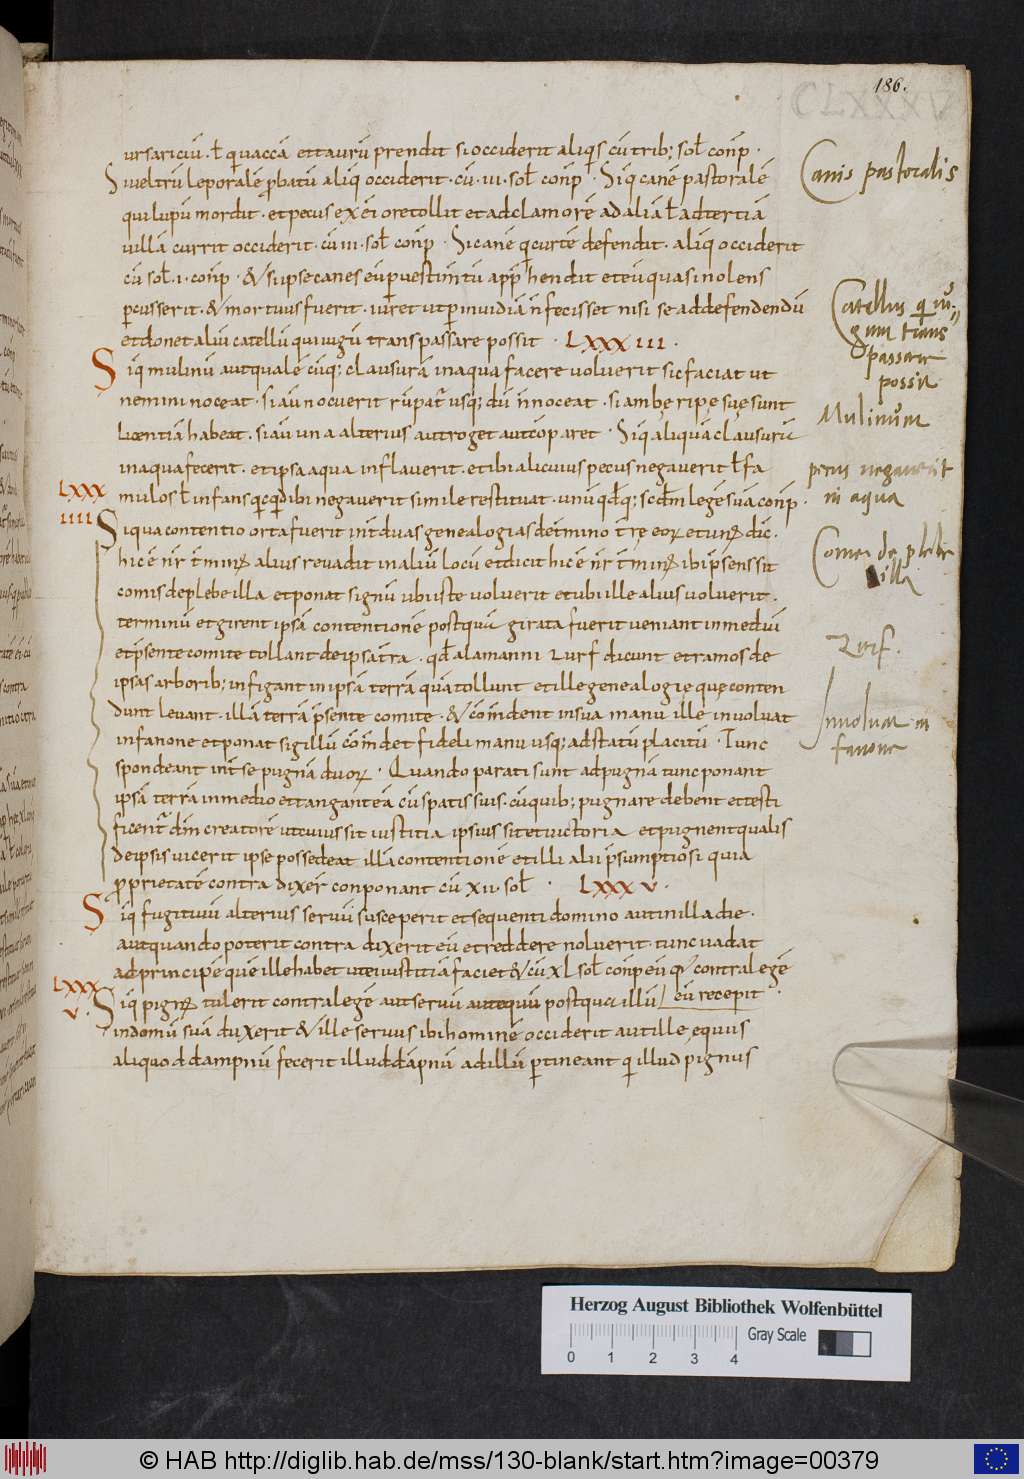 186.
ursariciū · ł qui vaccā et taurū prendit si occiderit aliqis cū trib; sol̄ conp̄ ·
Si veltrū leporalē p̄batū aliq̄ occiderit · cū · vi · sol̄ conp̄ · Siq̄ canē pastoralē
qui lupū mordit · et pecus ex ei ore tollit et ad clamorē ad aliā ł ad tertiā
villā currit occiderit · cū iii · sol̄ conp̄ · Si canē q̄ curtē defendit · aliq̄ occiderit
cū sol̄ · i · conp̄ · & si ipse canes eū p vestimtū app̄hendit et eū quasi nolens
p̄cusserit · & mortuus fuerit · iuret ut p inuidiā n̄ fecisset nisi se ad defendendū
et donet aliū catellū qui iugū transpassare possit · LXXXIII ·
Siq̄ mulinū aut qualē cūq; clausurā in aqua facere voluerit sic faciat ut
nemini noceat · si aū nocuerit rūpat̄ usq; dū n̄ noceat · si ambe ripę suę sunt
licentiā habeat · si aū una alterius aut roget aut cōparet · Siq̄ aliquā clausurā
in aqua fecerit · et ipsa aqua inflauerit · et ibi alicuius pecus negauerit ł fa
LXXX
IIII
mulos ł infans qicq̄d ibi negauerit simile restituat · unū qd̄q; scdm̄ legē suā conp̄ ·
Si qua contentio orta fuerit int̄ duas genealogias de t̄mino t̄rę eoꝝ et unꝰ dic̄ ·
hic ē nr̄ t̄minꝰ alius reuadit in aliū locū et dicit hic ē nr̄ t̄minꝰ ibi p̄sens sit
comis de plebe illa et ponat signū ubi iste voluerit et ubi ille alius voluerit ·
terminū et girent ipsā contentionē postquā girata fuerit veniant in mediū
et p̄sente comite tollant de ipsa t̄ra · qd̄ alamanni zurf dicunt et ramos de
ipsas arborib; infigant in ipsā terrā quā tollunt et ille genealogię quę conten
dunt levant · illā terrā p̄sente comite · & cōm̄dent in sua manu ille involvat
in fanone et ponat sigillū cōm̄det fideli manu usq; ad statutū placitū · Tunc
spondeant int̄ se pugnā duoꝝ · Quando parati sunt ad pugnā tunc ponant
ipsā terrā in medio et tangant eā cū spatis suis · cū quib; pugnare debent et testi
ficent̄ dm̄ creatorē ut cuius sit iustitia ipsius sit et victoria et pugnent qualis
de ipsis vicerit ipse possedeat illā contentionē et illi alii p̄sumptiosi quia
p̄prietatē contra dixer̄ conponant cū xii · sol̄ · LXXXV ·
Siq̄ fugitiuū alterius servū susceperit et sequenti domino aut in illa die ·
aut quando poterit contra dixerit eū et reddere noluerit · tunc vadat
ad principē quē ille habet ut ei iustitiā faciet & cū xl sol̄ conp̄ eū qi contra legē
LXXX
V ·
Siq̄ pignꝰ tulerit contra legē aut servū aut equū postquā illū eū recepit
in domū suā duxerit & ille servus ibi hominē occiderit aut ille equus
aliquod dampnū fecerit illud dāpnū ad illū p̄tineant qi illud pignus
Canis pastoralis
Catellus qi iu//
gum trans
passare
possit
Mulinum
pecus negauerit
in aqua
Comes de plebe
illa
Zurf.
Inuoluat in
fanone
Herzog August Bibliothek Wolfenbüttel
Gray Scale
0 1 2 3 4
© HAB http://diglib.hab.de/mss/130-blank/start.htm?image=00379